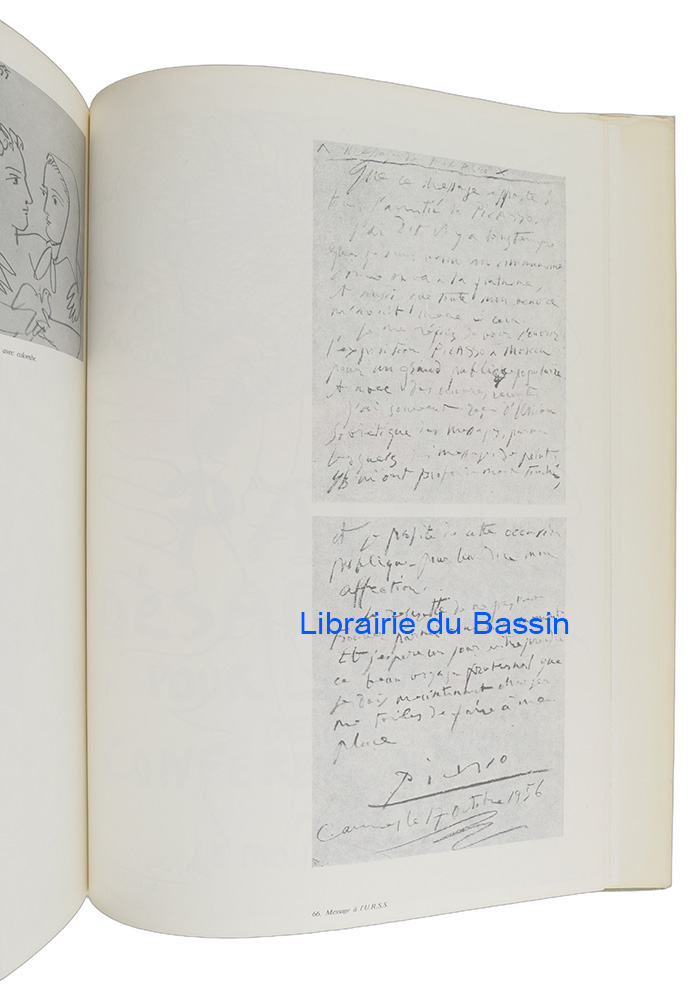 avec colombe.
Que ce message apporte à
tous l'amitié de Picasso.
J'ai dit il y a longtemps
que je suis venu au communisme
comme on va à la fontaine,
et aussi que toute mon œuvre
m'avait mené à cela
l'exposition Picasso à Moscou
pour un grand public populaire
et avec des œuvres récentes
J'ai souvent reçu d'Union
Soviétique des messages, parmi
lesquels des messages de peintres
qui m'ont profondément touché,
et je profite de cette occasion
publique pour leur dire mon
affection.
Je
Librairie du Bassin
Et j'espère un jour entreprendre
ce beau voyage que
je dois maintenant charger
mes toiles de faire à ma
place
Picasso
Cannes, le 17 Octobre 1956
66. Message à l'U.R.S.S.